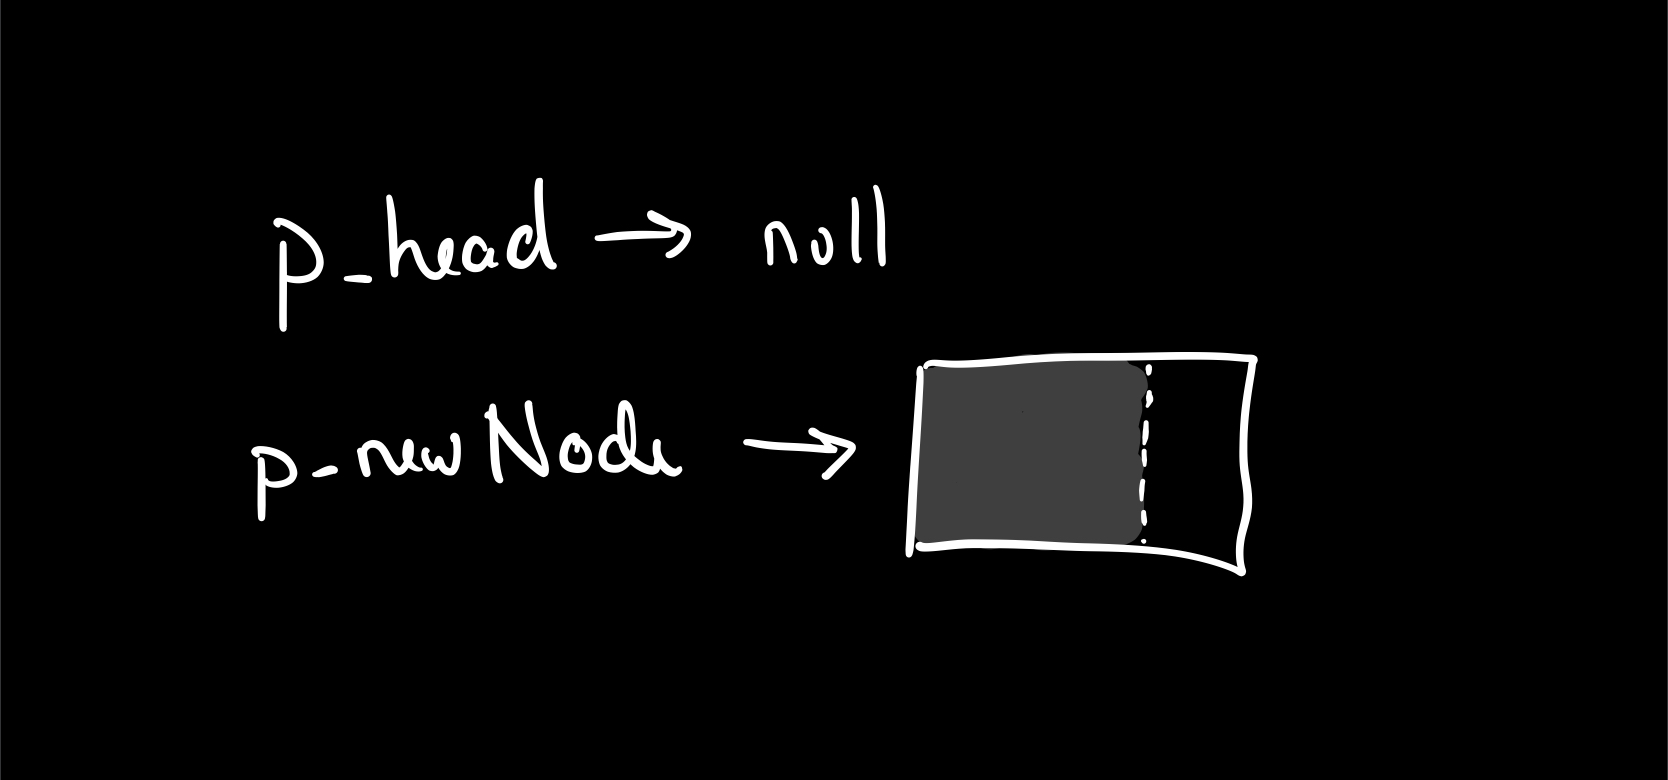 p_head → null
p_newNode →